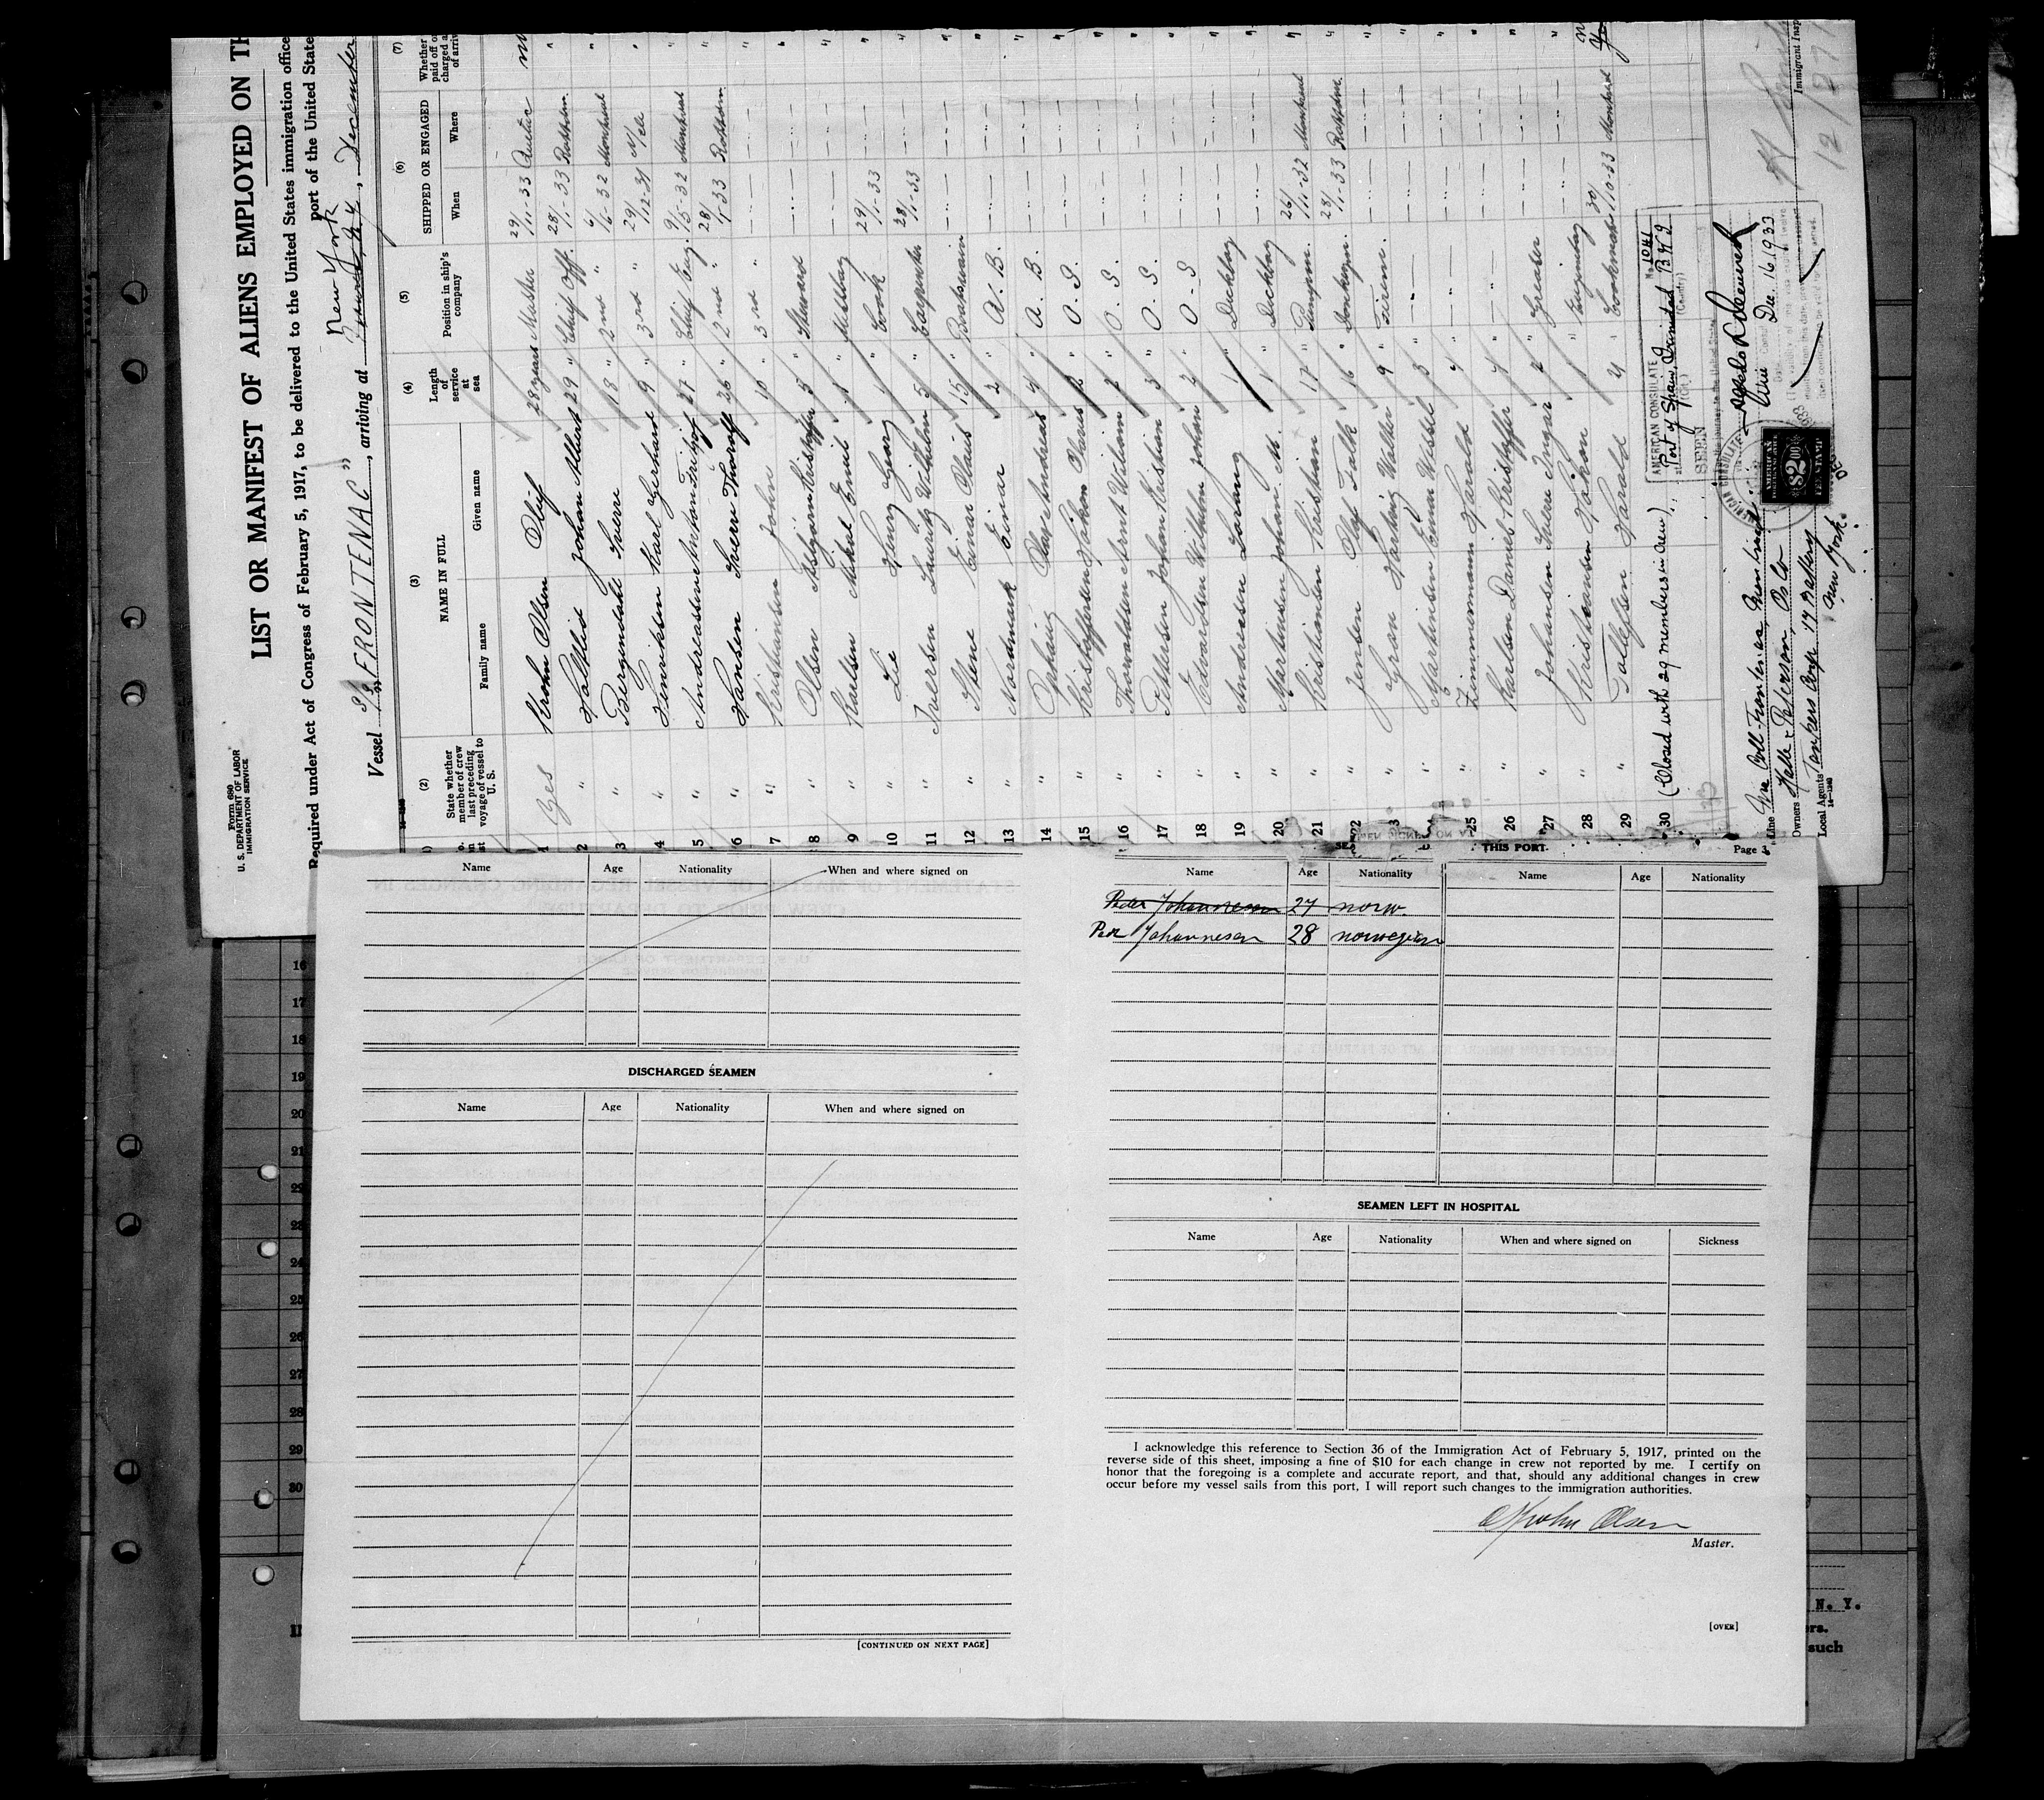 Form 680
U. S. DEPARTMENT OF LABOR
IMMIGRATION SERVICE
LIST OR MANIFEST OF ALIENS EMPLOYED ON TH
Required under Act of Congress of February 5, 1917, to be delivered to the United States immigration office
port of the United State
New York
Vessel "FRONTENAC", arriving at , December
(2) (3) (4) (5) (6) (7)
State whether member of crew last preceding voyage of vessel to U. S.
NAME IN FULL
Family name Given name
Length of service at sea
Position in ship's company
SHIPPED OR ENGAGED
When Where
Whether paid off or charged a of arriv
1 Yes Krohn Olsen Oluf 28 years Master 29/11-33
2 " Johan Albert 29 " Chief Off. 28/1-33 Rotterdm.
3 " Bergendahl Sverre 18 " 2nd " 6/6-32 Montreal
4 " Henriksen Karl Gerhard 9 " 3rd " 29/12-31
5 " Andreassen Anton Fritjof 27 " Chief Eng. 9/5-32 Montreal
6 " Hansen Sverr Thorolf 26 " 2nd " 28/1-33 Rotterdm
7 " Kristiansen John 10 " 3rd "
8 " Olsen Asbjørn Kristoffer 5 " Steward
9 " Paulsen Mikal Emil 1 " Messboy
10 " Lie Henry Georg 1 " Cook 29/1-33
11 " Iversen Lauritz Wilhelm 5 " Carpenter 28/1-33
12 " Stene Einar Olaus 15 " Boatswain
13 " Nordmark Einar 2 " A. B.
14 " Ophaug Olav Andreas 4 " A. B.
15 " Kristoffersen Håkon Olaus 2 " O. S.
16 " Thorvaldsen Arnt William 2 " O. S.
17 " Pettersen Johan Kristian 3 " O. S.
18 " Edvardsen Wilhelm Johan 2 " O. S
19 " Andreassen 1 " Deckboy
20 " Martinsen Johan M. 1 " Deckboy
21 " Kristiansen Kristian 17 " Pumpm. 26/11-32 Montreal
22 " Jensen Olaf Falk 16 " Donkeym. 28/1-33 Rotterdm.
23 " Gran Hartvig Walter 9 " Firem.
" Martinsen Einar Wessel 3 "
25 " Zimmermann Harald 4 "
26 " Karlsen Daniel Kristoffer 4 "
27 " Johansen Sverre Ingvar 2 " Greaser
28 " Kristiansen Håkon 1 " Engineboy
29 " Tollefsen Harald 4 " Cooksmate 30/10-33 Montreal
30 (Closed with 29 members in crew)
AMERICAN CONSULATE No. 1041
at Port of Spain, Trinidad B W I
(City) (Country)
SEEN
Vice Consul
Dec. 16 1933
AMERICAN CONSULATE
AMERICAN FOREIGN SERVICE $2.00 FEE STAMP
Line
Owners Oslo
Local Agents Tankers Corp. 17 Battery
New York.
Immigrant Insp
Name Age Nationality When and where signed on
DISCHARGED SEAMEN
Name Age Nationality When and where signed on
[CONTINUED ON NEXT PAGE]
THIS PORT
Page
Name Age Nationality Name Age Nationality
Peder Johannesen 27 norw.
Peder Johannesen 28 norwegian
SEAMEN LEFT IN HOSPITAL
Name Age Nationality When and where signed on Sickness
I acknowledge this reference to Section 36 of the Immigration Act of February 5, 1917, printed on the
reverse side of this sheet, imposing a fine of $10 for each change in crew not reported by me. I certify on
honor that the foregoing is a complete and accurate report, and that, should any additional changes in crew
occur before my vessel sails from this port, I will report such changes to the immigration authorities.
O Krohn Olsen
Master.
[OVER]
16
17
18
19
20
21
22
23
24
25
26
27
28
29
30
N. Y.
rs.
such